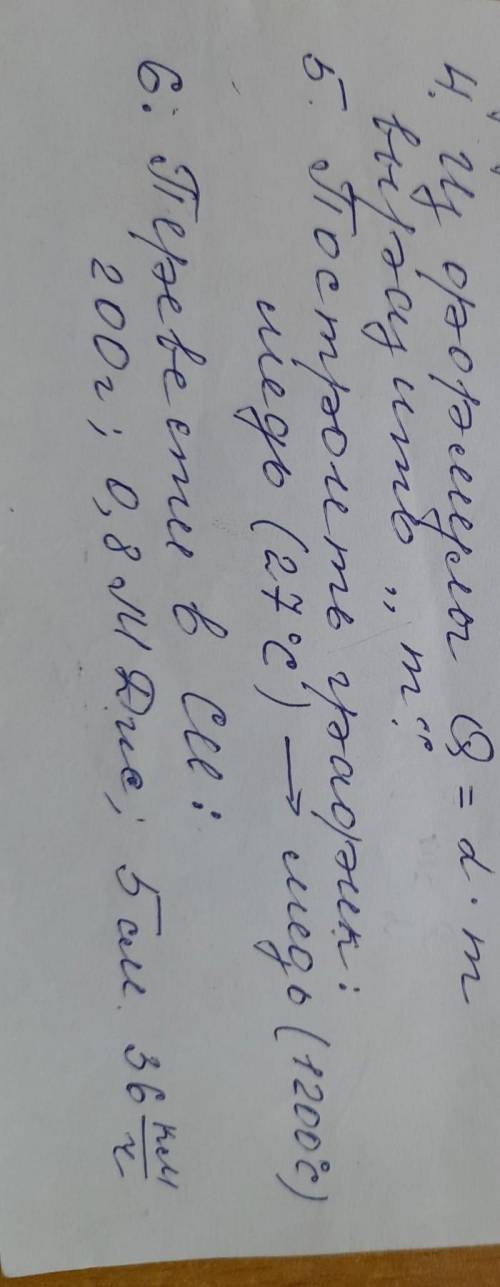 4. Из формулы Q = d · m
выразить „m“
5. Построить график:
медь (27°C) → медь (1200°C)
6. Перевести в СИ:
200г; 0,8 МДж; 5см. 36 км/ч